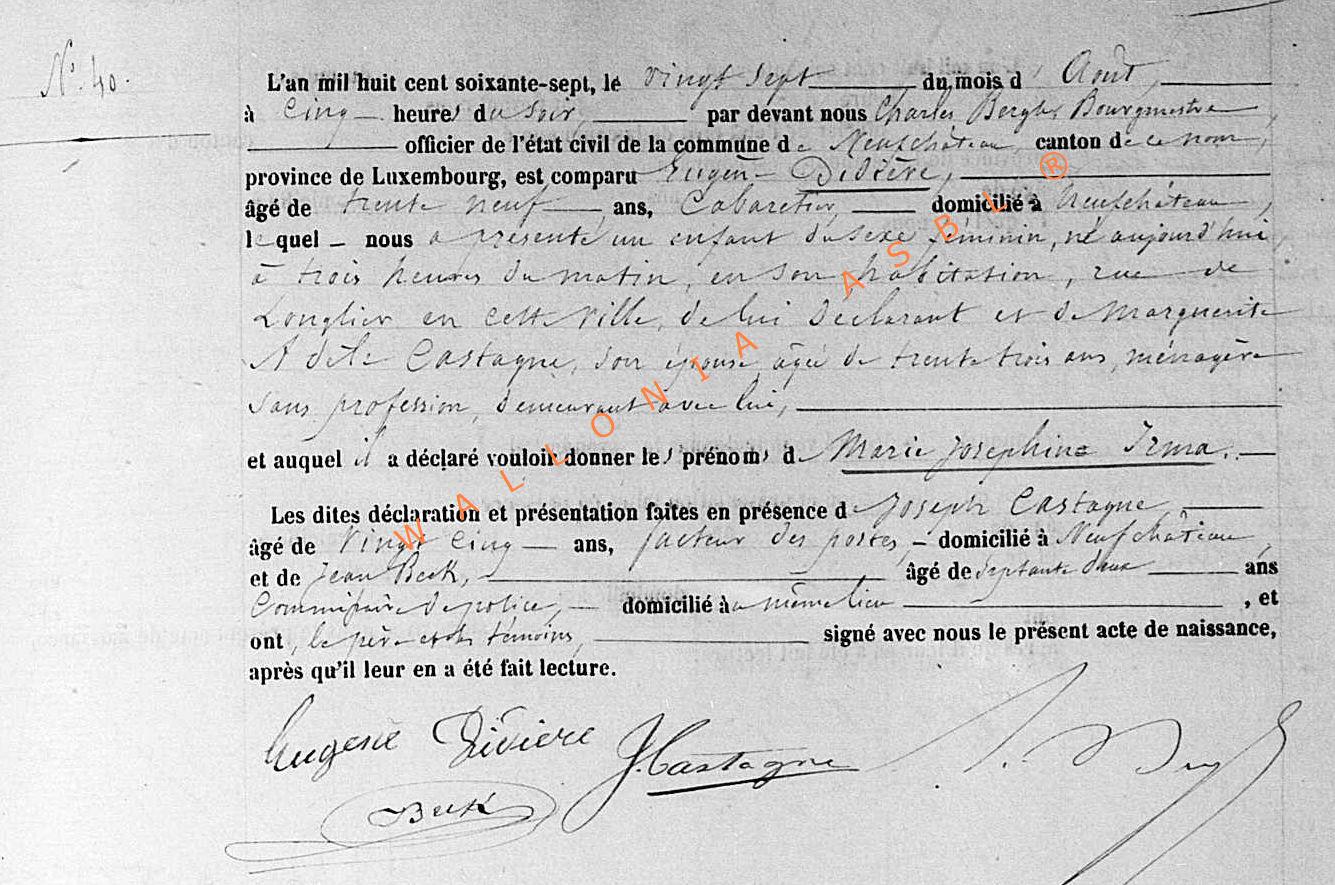 N° 40.
L'an mil huit cent soixante-sept, le vingt sept du mois d' Août,
à Cinq heures du soir, par devant nous Charles Bergh Bourgmestre,
officier de l'état civil de la commune de Neufchâteau, canton de ce nom,
province de Luxembourg, est comparu Eugène Didière,
âgé de trente neuf ans, Cabaretier, domicilié à Neufchâteau,
lequel nous a présenté un enfant du sexe féminin, né aujourd'hui
à trois heures du matin, en son habitation, rue de
Longlier en cette ville, de lui déclarant et de Marguerite
Adèle Castagne, son épouse, âgée de trente trois ans, ménagère
sans profession, demeurant avec lui,
et auquel il a déclaré vouloir donner les prénoms de Marie Josephine Irma.
Les dites déclaration et présentation faites en présence de Joseph Castagne,
âgé de Vingt Cinq ans, facteur des postes, domicilié à Neufchâteau,
et de Jean Beck, âgé de septante deux ans
Commissaire de police, domicilié au même lieu, et
ont, le père et les témoins, signé avec nous le présent acte de naissance,
après qu'il leur en a été fait lecture.
Eugène Didière J. Castagne
Beck
WALLONIA ASBL ®